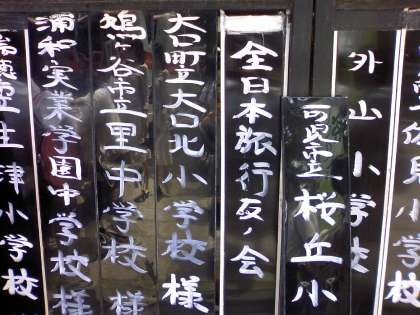 佐見小学校
外山小学校
可児市立桜丘小
全日本旅行友ノ会
大口町立大口北小学校様
鳩ヶ谷市立里中学校様
浦和実業学園中学校様
瑞穂市立生津小学校